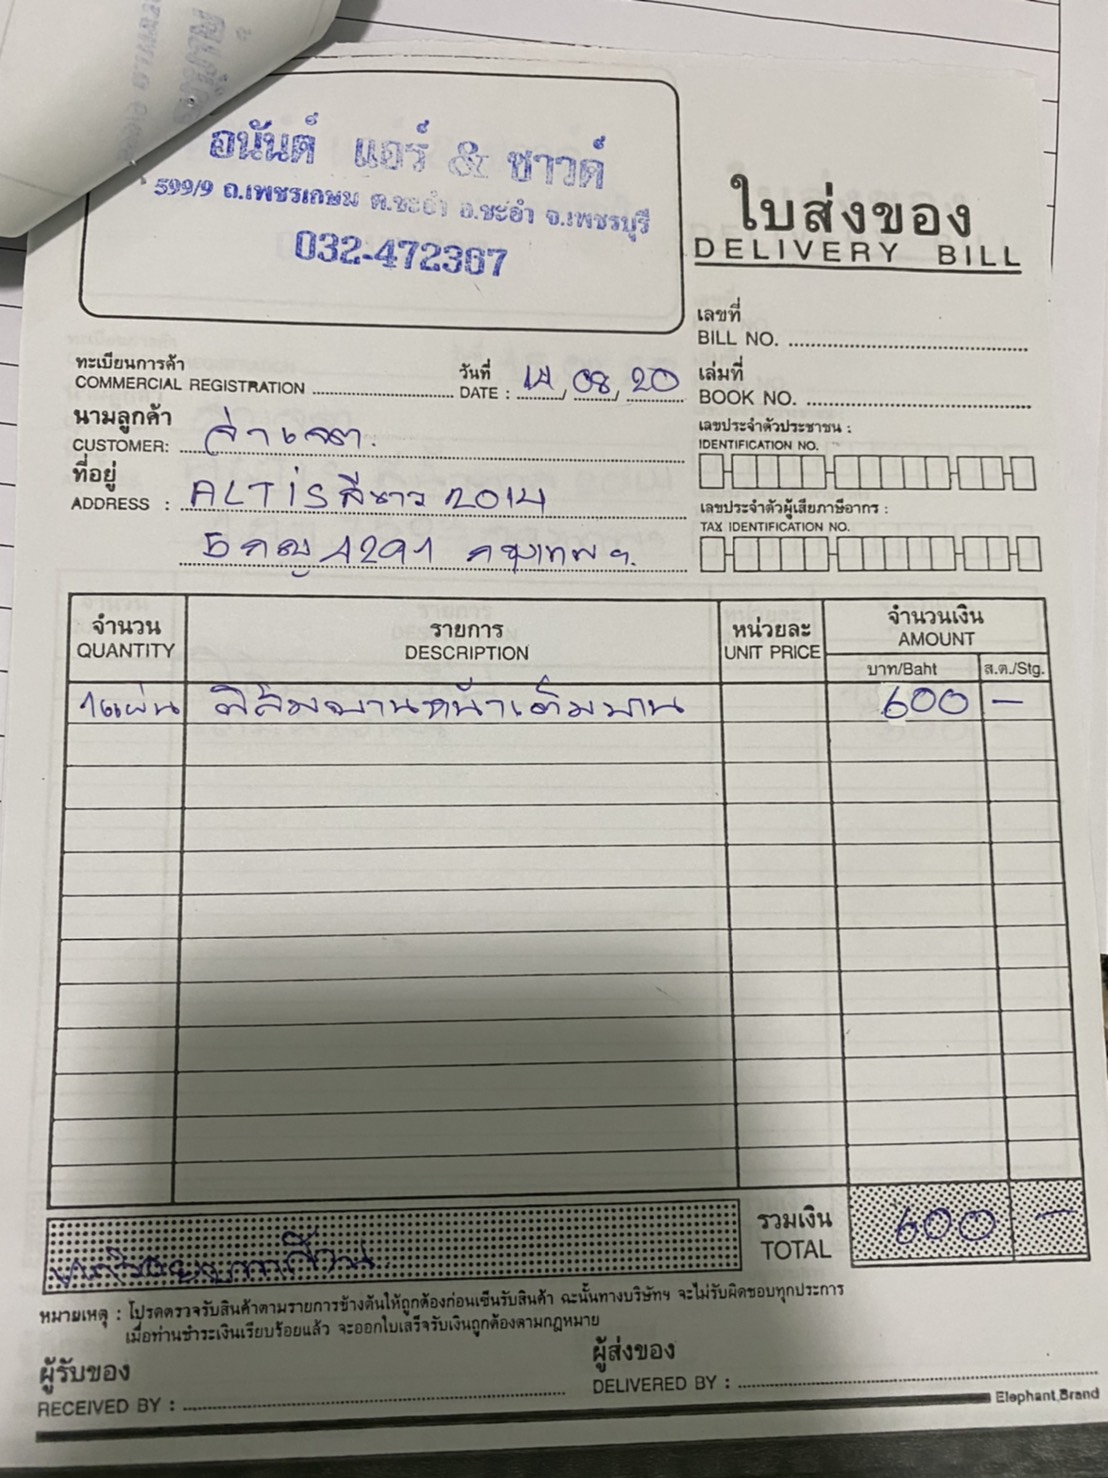 อนันต์ แอร์ & ซาวด์
599/9 ถ.เพชรเกษม ต.ชะอำ อ.ชะอำ จ.เพชรบุรี
032-472367
ใบส่งของ
DELIVERY BILL
เลขที่
BILL NO.
ทะเบียนการค้า
COMMERCIAL REGISTRATION
วันที่
DATE : 14/08/20
เล่มที่
BOOK NO.
นามลูกค้า
CUSTOMER:
เลขประจำตัวประชาชน :
IDENTIFICATION NO.
ที่อยู่
ADDRESS : ALTIS สีขาว 2014
เลขประจำตัวผู้เสียภาษีอากร :
TAX IDENTIFICATION NO.
5กญ 4291 กรุงเทพฯ
จำนวน
QUANTITY
รายการ
DESCRIPTION
หน่วยละ
UNIT PRICE
จำนวนเงิน
AMOUNT
บาท/Baht ส.ต./Stg.
1แผ่น ฟิล์มบานหน้าเต็มบาน 600 -
หกร้อยบาทถ้วน
รวมเงิน
TOTAL
600 -
หมายเหตุ : โปรดตรวจรับสินค้าตามรายการข้างต้นให้ถูกต้องก่อนเซ็นรับสินค้า ฉะนั้นทางบริษัทฯ จะไม่รับผิดชอบทุกประการ
เมื่อท่านชำระเงินเรียบร้อยแล้ว จะออกใบเสร็จรับเงินถูกต้องตามกฎหมาย
ผู้รับของ
RECEIVED BY :
ผู้ส่งของ
DELIVERED BY :
Elephant Brand